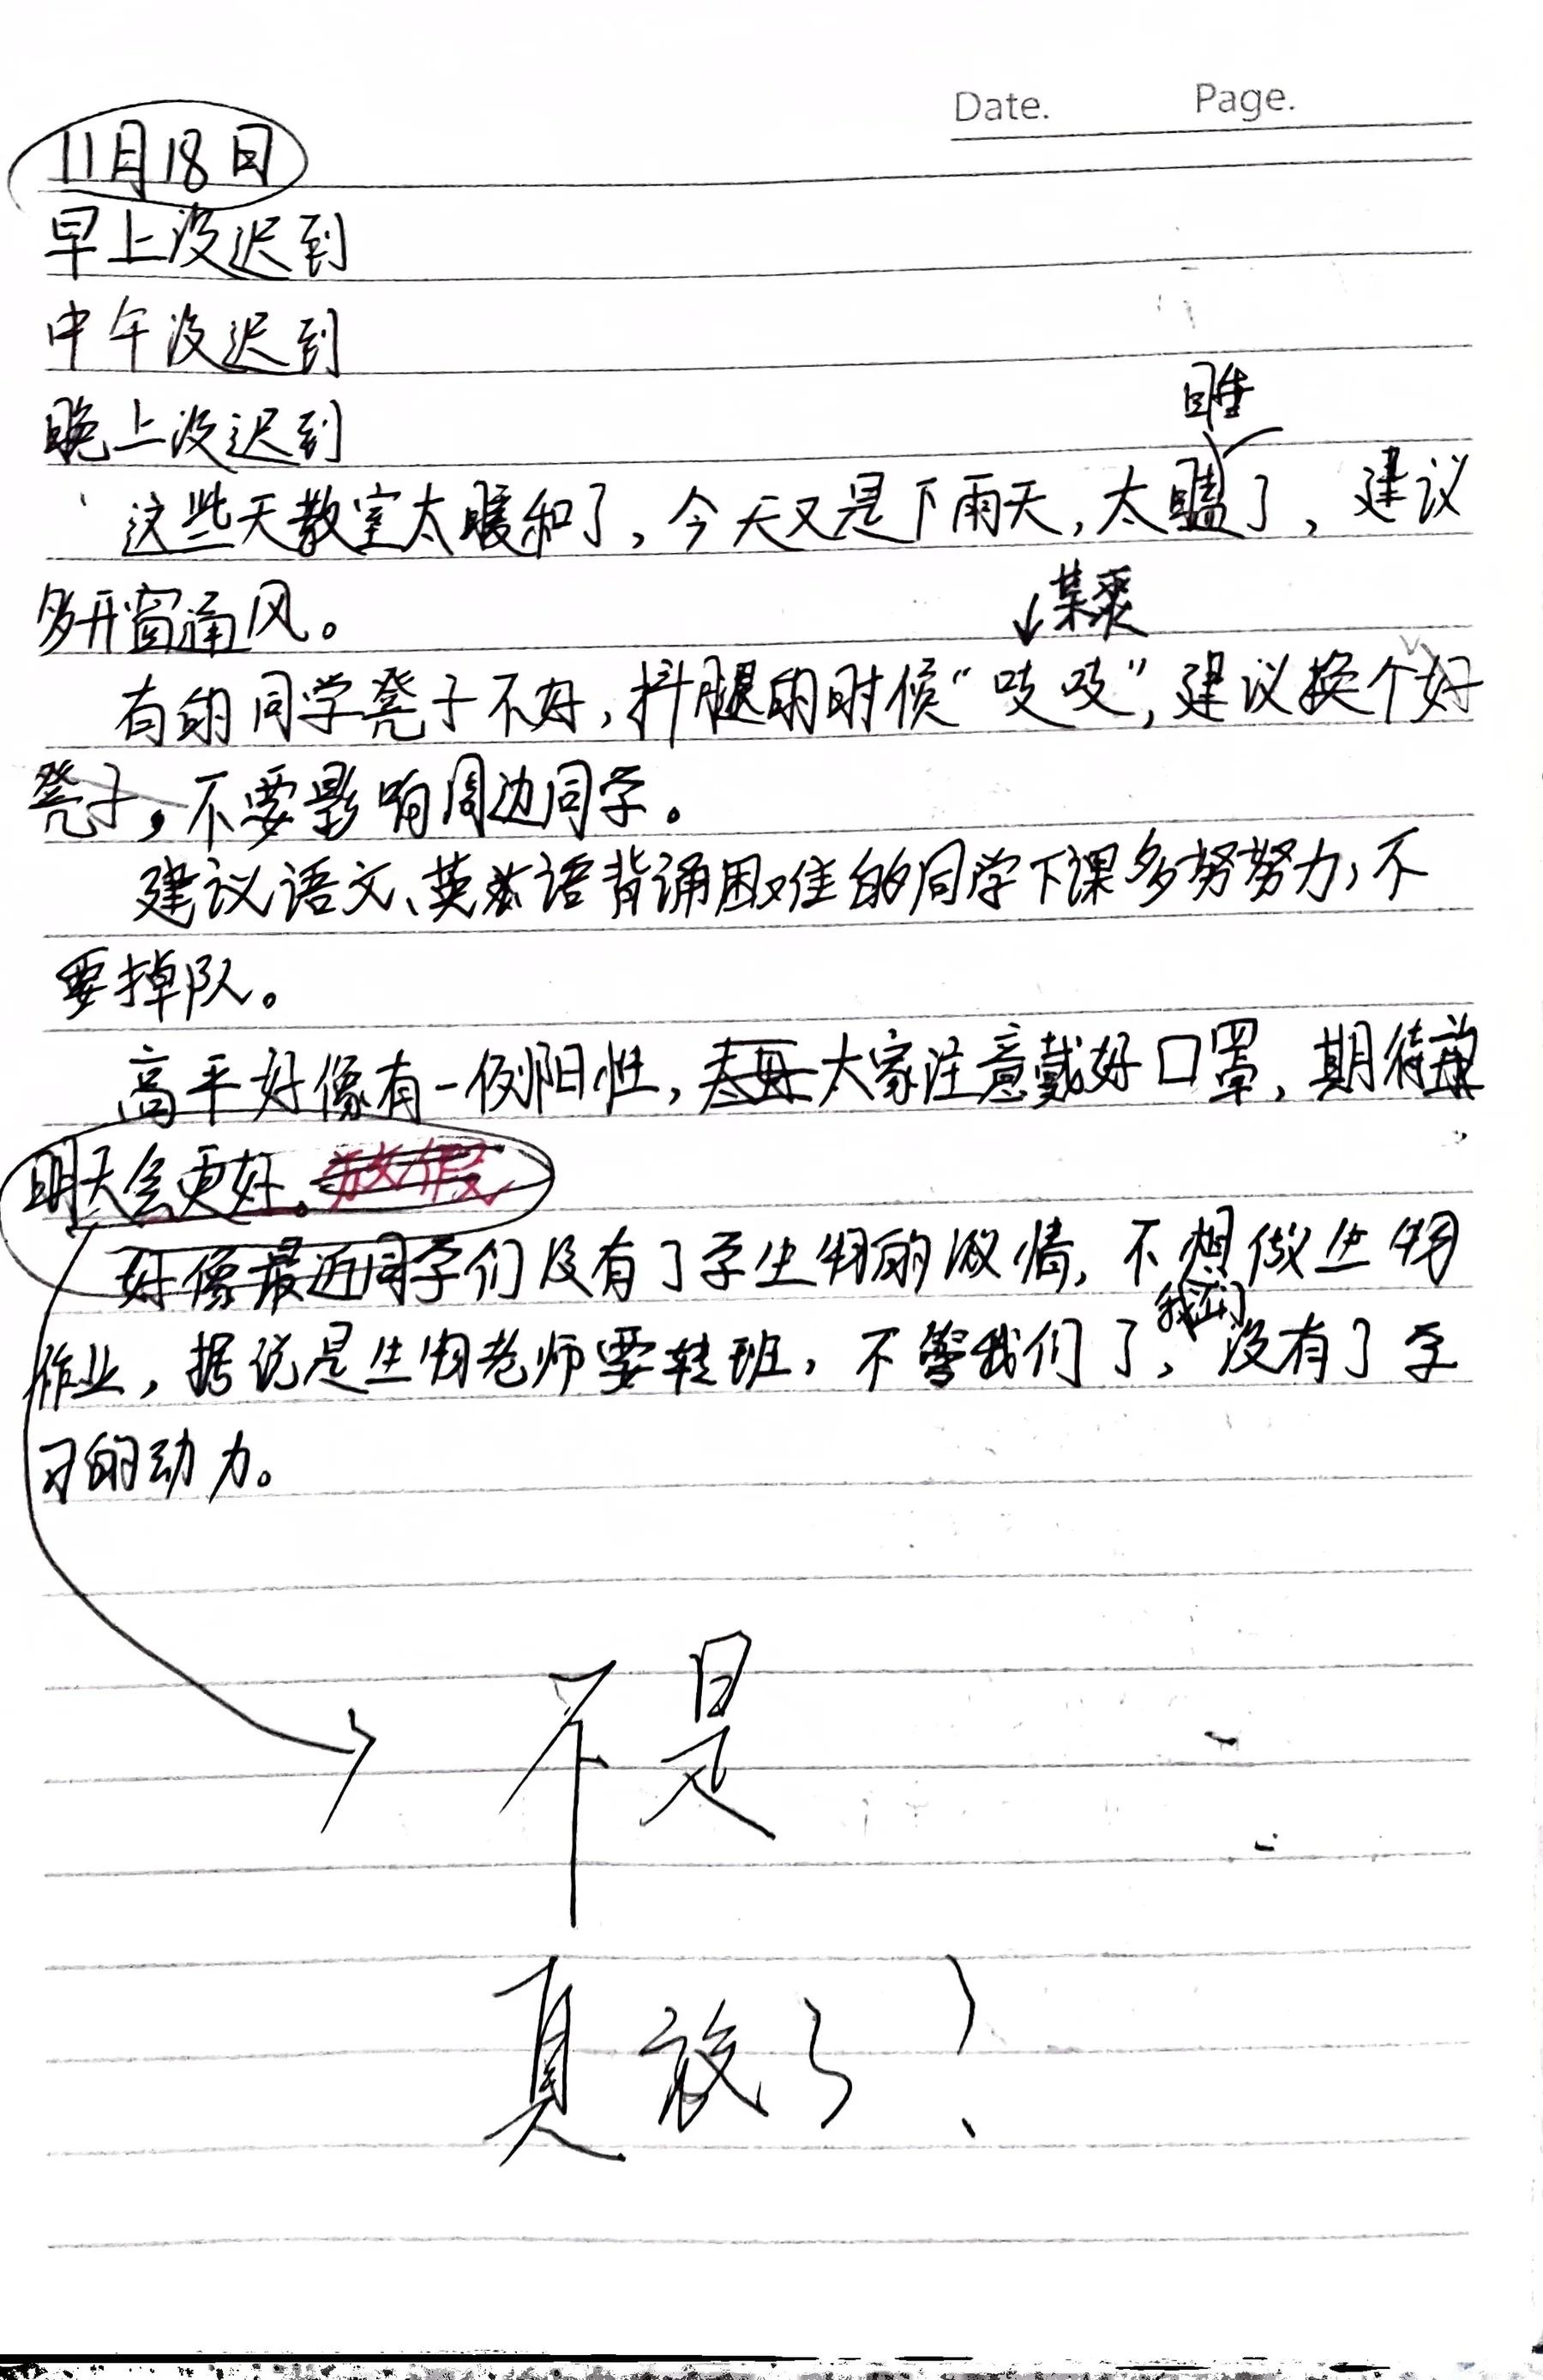 Date. Page.
11月18日
早上没迟到
中午没迟到
晚上没迟到
这些天教室太暖和了，今天又是下雨天，太瞌了，建议
多开窗通风。
有的同学凳子不好，抖腿的时候“吱吱”，建议换个好
凳子，不要影响周边同学。
建议语文、英语背诵困难的同学下课多努努力，不
要掉队。
高平好像有一例阳性，大家注意戴好口罩，期待
明天会更好。放假
好像最近同学们没有了学生物的激情，不想做生物
作业，据说是生物老师要转班，不管我们了，我们没有了学
习的动力。
不是
真放了？